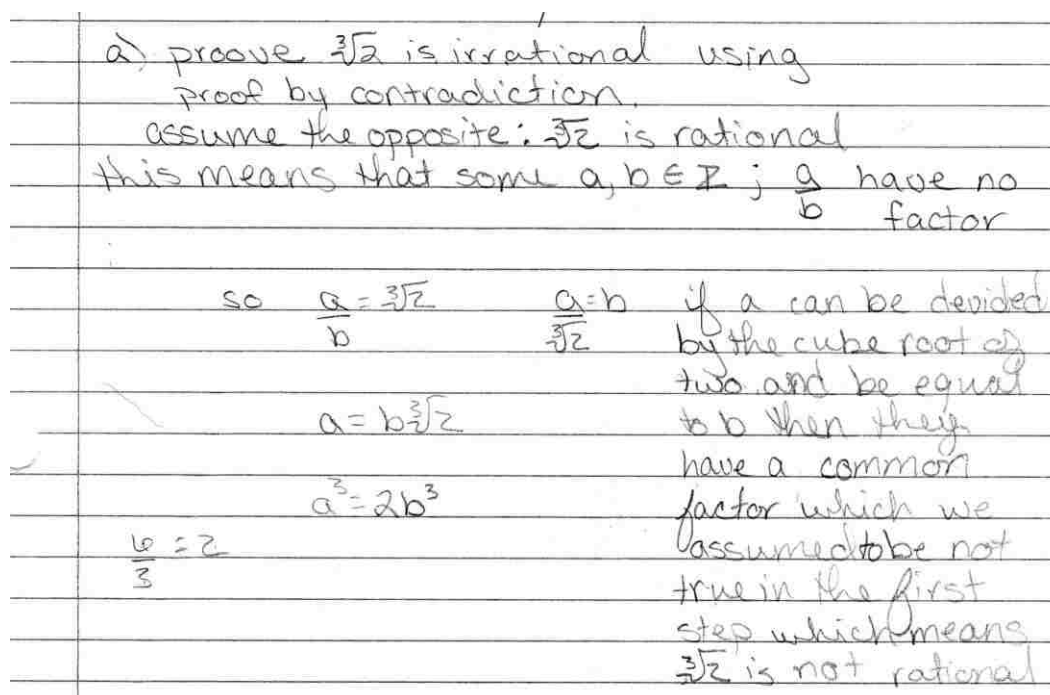 a) proove ∛2 is irrational using
proof by contradiction.
assume the opposite: ∛2 is rational
this means that some a, b ∈ Z ; a/b have no
factor
so a/b = ∛2
a = b∛2
a³ = 2b³
6/3 = 2
a/∛2 = b
if a can be devided
by the cube root of
two and be equal
to b then they
have a common
factor which we
assumed to be not
true in the first
step which means
∛2 is not rational